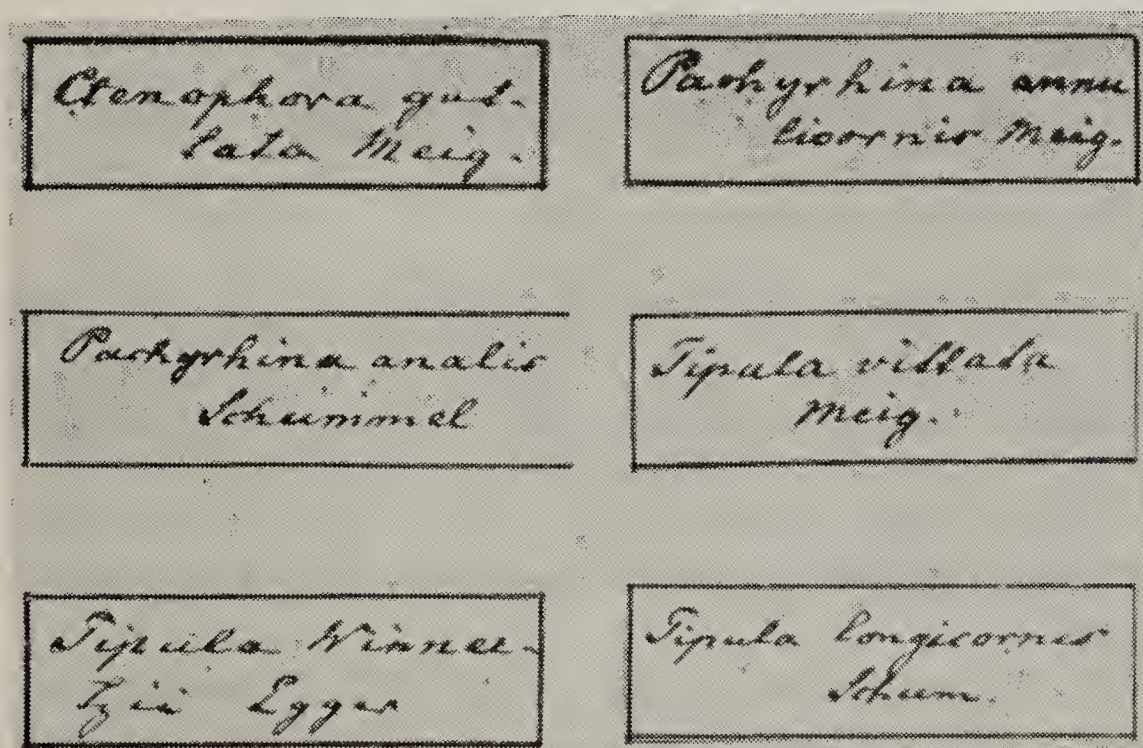 Ctenophora gut-
tata Meig.
Pachyrhina annu
licornis Meig.
Pachyrhina analis
Schummel
Tipula vittata
Meig.
Tipula Winner-
tzii Egger
Tipula longicornis
Schum.